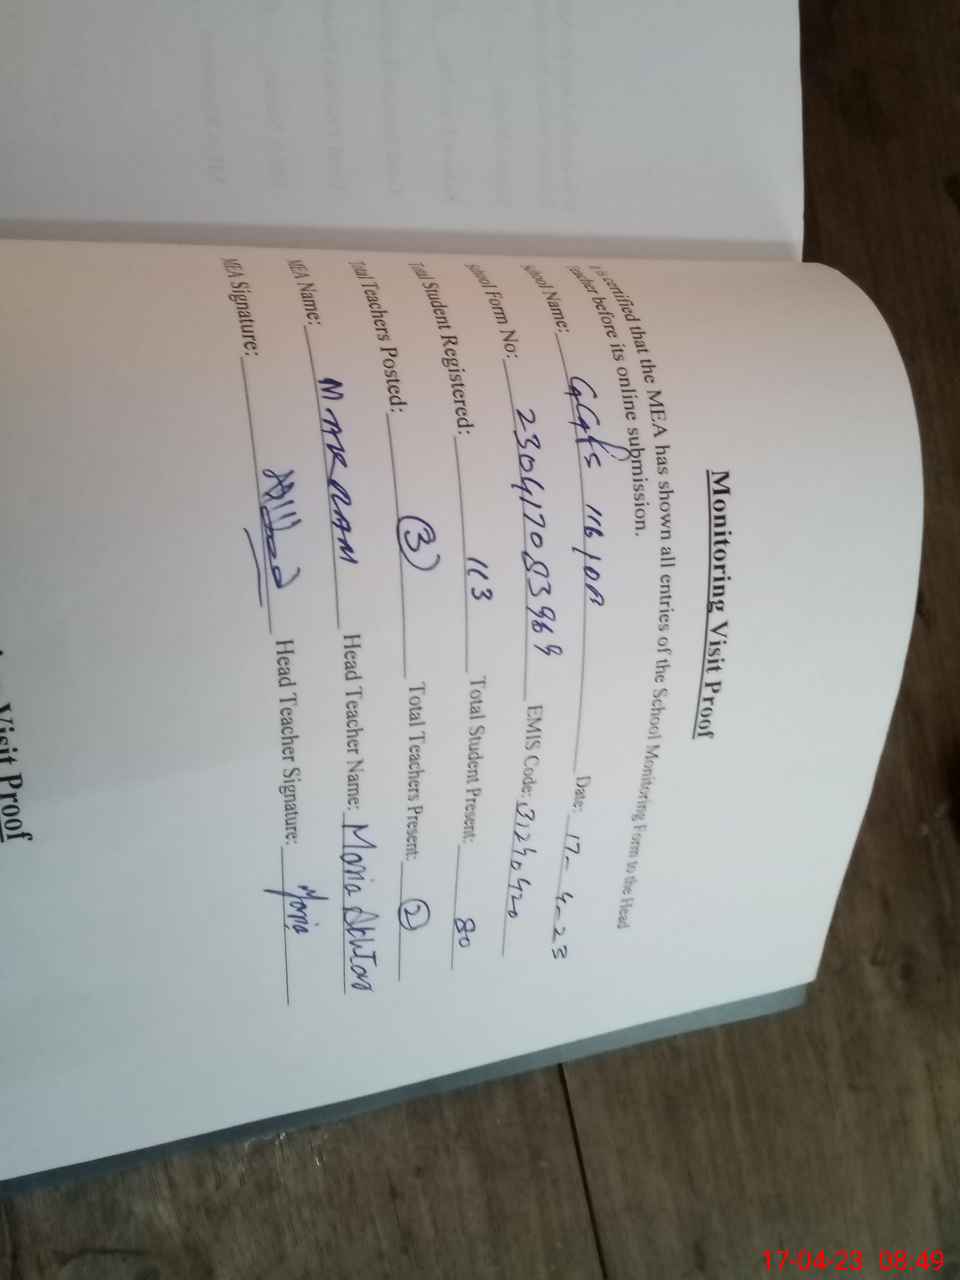 Monitoring Visit Proof
It is certified that the MEA has shown all entries of the School Monitoring Form to the Head
teacher before its online submission.
School Name: GGPS 116/DB Date: 17-4-23
School Form No: 230417083969 EMIS Code: 31240420
Total Student Registered: 113 Total Student Present: 80
Total Teachers Posted: 3 Total Teachers Present: 2
MEA Name: M AKRAM Head Teacher Name: Maria Akhtar
MEA Signature: Head Teacher Signature: Maria
Visit Proof
17-04-23 08:49